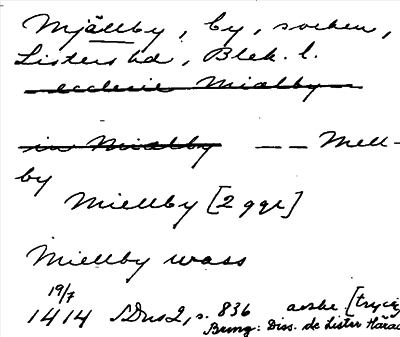 Mjällby, by, socken,
Listers hd, Blek. l.
ecclesie Mialby
in Mialby — — Mell-
by
Miellby [2 ggr]
Miellby wass
19/7
1414 SDns2, s. 836 avskr [tryckt
Bring: Diss. de Lister Härad